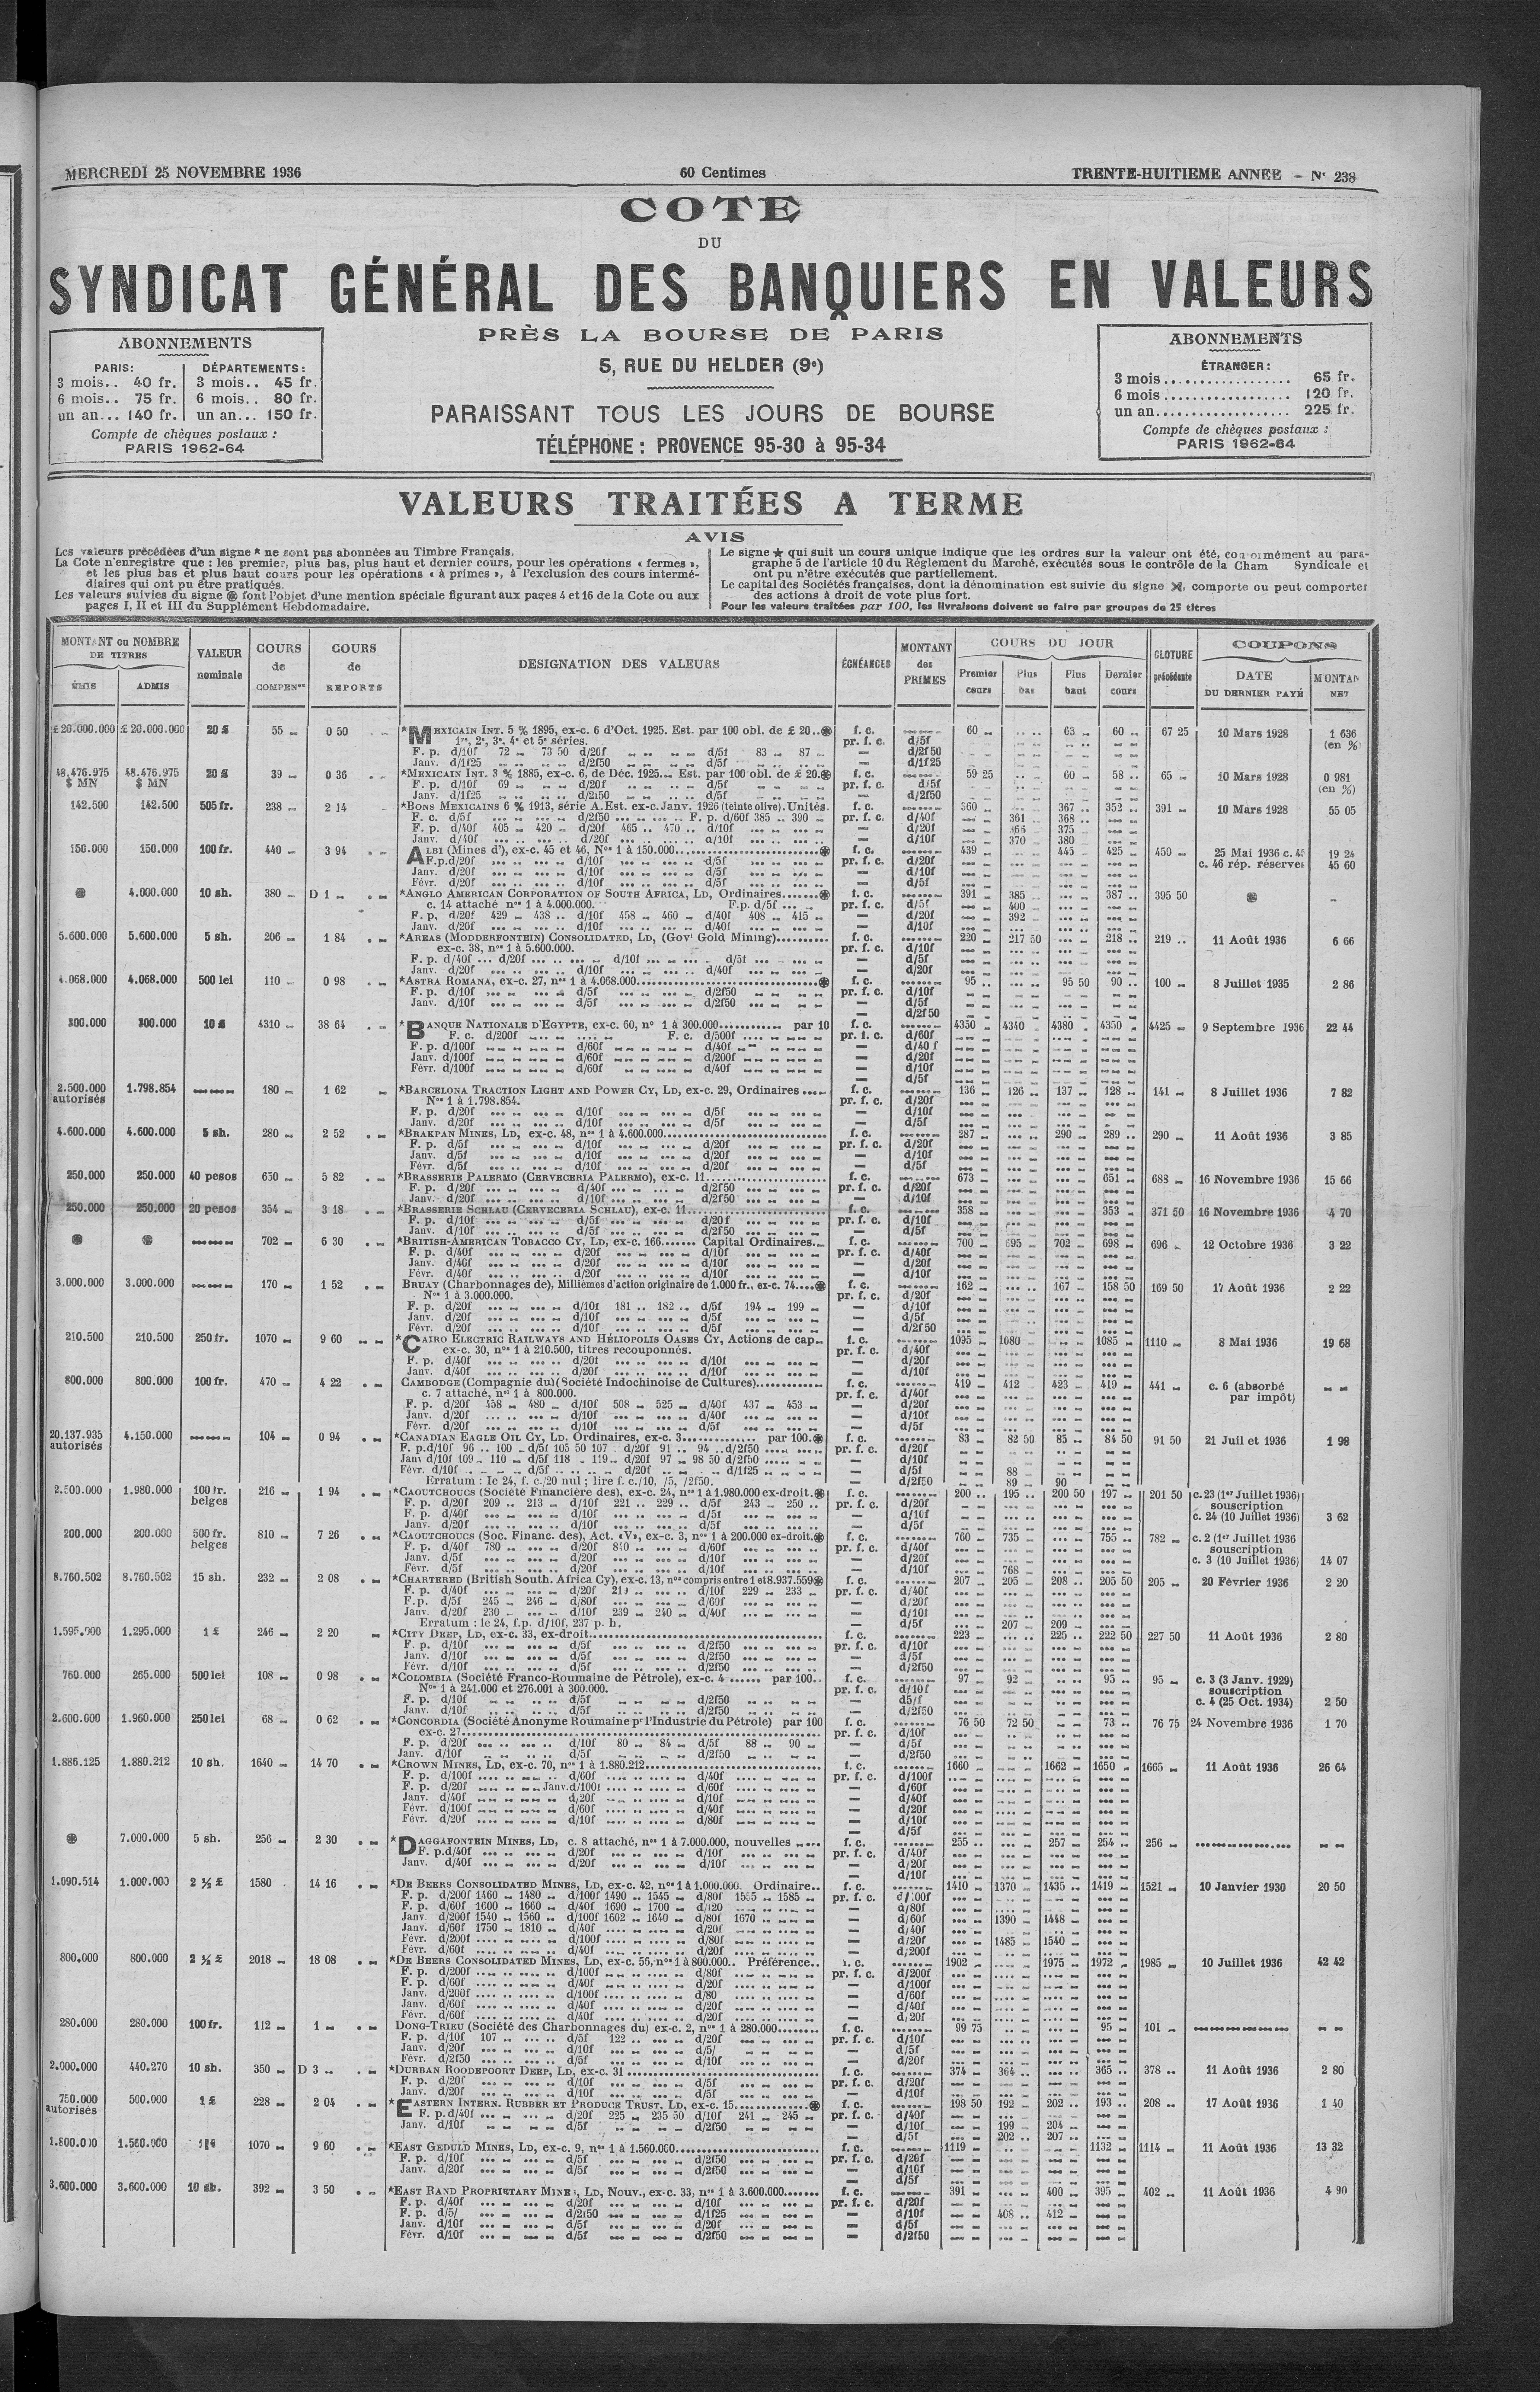 MERCREDI 25 NOVEMBRE 1936
60 Centimes
TRENTE-HUITIEME ANNEE – Nº 238
COTE
DU
SYNDICAT GÉNÉRAL DES BANQUIERS EN VALEURS
PRÈS LA BOURSE DE PARIS
5, RUE DU HELDER (9e)
PARAISSANT TOUS LES JOURS DE BOURSE
TÉLÉPHONE : PROVENCE 95-30 à 95-34
ABONNEMENTS
PARIS: DÉPARTEMENTS:
3 mois.. 40 fr. 3 mois.. 45 fr.
6 mois.. 75 fr. 6 mois.. 80 fr.
un an... 140 fr. un an... 150 fr.
Compte de chèques postaux :
PARIS 1962-64
ABONNEMENTS
ÉTRANGER :
3 mois.................. 65 fr.
6 mois.................. 120 fr.
un an................... 225 fr.
Compte de chèques postaux :
PARIS 1962-64
VALEURS TRAITÉES A TERME
AVIS
Les valeurs précédées d'un signe * ne sont pas abonnées au Timbre Français.
La Cote n'enregistre que : les premier, plus bas, plus haut et dernier cours, pour les opérations « fermes »,
et les plus bas et plus haut cours pour les opérations « à primes », à l'exclusion des cours intermé-
diaires qui ont pu être pratiqués.
Les valeurs suivies du signe ֍ font l'objet d'une mention spéciale figurant aux pages 4 et 16 de la Cote ou aux
pages I, II et III du Supplément Hebdomadaire.
Le signe ★ qui suit un cours unique indique que les ordres sur la valeur ont été, conformément au para-
graphe 5 de l'article 10 du Règlement du Marché, exécutés sous le contrôle de la Cham Syndicale et
ont pu n'être exécutés que partiellement.
Le capital des Sociétés françaises, dont la dénomination est suivie du signe, comporte ou peut comporter
des actions à droit de vote plus fort.
Pour les valeurs traitées par 100, les livraisons doivent se faire par groupes de 25 titres
MONTANT ou NOMBRE DE TITRES
ÉMIS ADMIS
VALEUR nominale
COURS de COMPENon
COURS de REPORTS
DESIGNATION DES VALEURS
ÉCHÉANCES
MONTANT des PRIMES
COURS DU JOUR
Premier cours Plus bas Plus haut Dernier cours
CLOTURE précédente
COUPONS
DATE DU DERNIER PAYÉ
MONTAN NET
£ 20.000.000 £ 20.000.000 20 £ 55 0 50 *MEXICAIN INT. 5 % 1895, ex-c. 6 d'Oct. 1925. Est. par 100 obl. de £ 20.. f. c. 60 63 60 67 25 10 Mars 1928 1 636
1re, 2e, 3e, 4e et 5e séries. pr. f. c. d/5f (en %)
F. p. d/10f 72 73 50 d/20f d/5f 83 87 d/2f50
Janv. d/1f25 d/2f50 d/5f d/1f25
48.476.975 48.476.975 20 £ 39 0 36 *MEXICAIN INT. 3 % 1885, ex-c. 6, de Déc. 1925. Est. par 100 obl. de £ 20. f. c. 59 25 60 58 65 10 Mars 1928 0 981
$ MN $ MN F. p. d/10f 69 d/20f d/5f pr. f. c. d/5f (en %)
Janv. d/1f25 d/2f50 d/5f d/2f50
142.500 142.500 505 fr. 238 2 14 *BONS MEXICAINS 6 % 1913, série A. Est. ex-c. Janv. 1926 (teinte olive). Unités f. c. 360 367 352 391 10 Mars 1928 55 05
F. c. d/5f d/2f50 F. p. d/60f 385 390 pr. f. c. d/40f 361 368
F. p. d/40f 405 420 d/20f 465 470 d/10f d/20f 366 375
Janv. d/40f d/20f d/10f d/10f 370 380
150.000 150.000 100 fr. 440 3 94 ALBI (Mines d'), ex-c. 45 et 46, Nos 1 à 150.000 f. c. 439 445 425 450 25 Mai 1936 c. 45 19 24
F.p. d/20f d/10f d/5f pr. f. c. d/20f c. 46 rép. réservée 45 60
Janv. d/20f d/10f d/5f d/10f
Févr. d/20f d/10f d/5f d/5f
4.000.000 10 sh. 380 D 1 *ANGLO AMERICAN CORPORATION OF SOUTH AFRICA, LD, Ordinaires f. c. 391 385 387 395 50
c. 14 attaché nos 1 à 4.000.000. F.p. d/5f pr. f. c. d/5f 400
F. p. d/20f 429 438 d/10f 458 460 d/40f 408 415 d/20f 392
Janv. d/20f d/10f d/40f d/10f
5.600.000 5.600.000 5 sh. 206 1 84 *AREAS (MODDERFONTEIN) CONSOLIDATED, LD, (Govt Gold Mining) f. c. 220 217 50 218 219 11 Août 1936 6 66
ex-c. 38, nos 1 à 5.600.000. pr. f. c. d/10f
F. p. d/40f d/20f d/10f d/5f d/5f
Janv. d/20f d/10f d/40f d/20f
4.068.000 4.068.000 500 lei 110 0 98 *ASTRA ROMANA, ex-c. 27, nos 1 à 4.068.000 f. c. 95 95 50 90 100 8 Juillet 1935 2 86
F. p. d/10f d/5f d/2f50 pr. f. c. d/10f
Janv. d/10f d/5f d/2f50 d/5f
d/2f50
300.000 300.000 10 £ 4310 38 64 *BANQUE NATIONALE D'EGYPTE, ex-c. 60, no 1 à 300.000 par 10 f. c. 4350 4340 4380 4350 4425 9 Septembre 1936 22 44
F. c. d/200f F. c. d/500f pr. f. c. d/60f
F. p. d/100f d/60f d/40f d/40f
Janv. d/100f d/60f d/200f d/20f
Févr. d/100f d/60f d/40f d/10f
d/5f
2.500.000 1.798.854 180 1 62 *BARCELONA TRACTION LIGHT AND POWER CY, LD, ex-c. 29, Ordinaires f. c. 136 126 137 128 141 8 Juillet 1936 7 82
autorisés Nos 1 à 1.798.854. pr. f. c. d/20f
F. p. d/20f d/10f d/5f d/10f
Janv. d/20f d/10f d/5f d/5f
4.600.000 4.600.000 5 sh. 280 2 52 *BRAKPAN MINES, LD, ex-c. 48, nos 1 à 4.600.000 f. c. 287 290 289 290 11 Août 1936 3 85
F. p. d/5f d/10f d/20f pr. f. c. d/20f
Janv. d/5f d/10f d/20f d/10f
Févr. d/5f d/10f d/20f d/5f
250.000 250.000 40 pesos 650 5 82 *BRASSERIE PALERMO (CERVECERIA PALERMO), ex-c. 11 f. c. 673 651 683 16 Novembre 1936 15 66
F. p. d/20f d/40f d/2f50 pr. f. c. d/20f
Janv. d/20f d/10f d/2f50 d/10f
250.000 250.000 20 pesos 354 3 18 *BRASSERIE SCHLAU (CERVECERIA SCHLAU), ex-c. 11 f. c. 358 353 371 50 16 Novembre 1936 4 70
F. p. d/10f d/5f d/20f pr. f. c. d/10f
Janv. d/10f d/5f d/2f50 d/5f
702 6 30 *BRITISH-AMERICAN TOBACCO CY, LD, ex-c. 166 Capital Ordinaires f. c. 700 695 702 698 696 12 Octobre 1936 3 22
F. p. d/40f d/20f d/10f pr. f. c. d/40f
Janv. d/40f d/20f d/10f d/20f
Févr. d/40f d/20f d/10f d/10f
3.000.000 3.000.000 170 1 52 BRUAY (Charbonnages de), Millièmes d'action originaire de 1.000 fr., ex-c. 74 f. c. 162 167 158 50 169 50 17 Août 1936 2 22
Nos 1 à 3.000.000. pr. f. c. d/20f
F. p. d/20f d/10f 181 182 d/5f 194 199 d/10f
Janv. d/20f d/10f d/5f d/5f
Févr. d/20f d/10f d/5f d/2f50
210.500 210.500 250 fr. 1070 9 60 *CAIRO ELECTRIC RAILWAYS AND HÉLIOPOLIS OASES CY, Actions de cap. f. c. 1095 1080 1085 1110 8 Mai 1936 19 68
ex-c. 30, nos 1 à 210.500, titres recouponnés. pr. f. c. d/40f
F. p. d/40f d/20f d/10f d/20f
Janv. d/40f d/20f d/10f d/10f
800.000 800.000 100 fr. 470 4 22 CAMBODGE (Compagnie du) (Société Indochinoise de Cultures) f. c. 419 412 423 419 441 c. 6 (absorbé
c. 7 attaché, nos 1 à 800.000. pr. f. c. d/40f par impôt)
F. p. d/20f 458 480 d/10f 508 525 d/40f 437 453 d/20f
Janv. d/20f d/10f d/40f d/10f
Févr. d/20f d/10f d/5f d/5f
20.137.935 4.150.000 104 0 94 *CANADIAN EAGLE OIL CY, LD. Ordinaires, ex-c. 3 par 100. f. c. 83 82 50 85 84 50 91 50 21 Juil et 1936 1 98
autorisés F. p.d/10f 96 100 d/5f 105 50 107 d/20f 91 94 d/2f50 pr. f. c. d/20f
Janv d/10f 109 110 d/5f 118 119 d/20f 97 98 50 d/2f50 d/10f
Févr. d/10f d/5f d/20f d/1f25 d/5f 88
Erratum : le 24, f. c./20 nul ; lire f. c./10, /5, /2f50. d/2f50 89 90
2.500.000 1.980.000 100 fr. belges 216 1 94 *CAOUTCHOUCS (Société Financière des), ex-c. 24, nos 1 à 1.980.000 ex-droit. f. c. 200 195 200 50 197 201 50 c. 23 (1er Juillet 1936)
F. p. d/20f 209 213 d/10f 221 229 d/5f 243 250 pr. f. c. d/20f souscription
F. p. d/40f d/10f d/5f d/10f c. 24 (10 Juillet 1936) 3 62
Janv. d/20f d/10f d/5f d/5f
200.000 200.000 500 fr. belges 810 7 26 *CAOUTCHOUCS (Soc. Financ. des), Act. «V», ex-c. 3, nos 1 à 200.000 ex-droit. f. c. 760 735 755 782 c. 2 (1er Juillet 1936
F. p. d/40f 780 d/20f 810 d/60f pr. f. c. d/40f souscription
Janv. d/5f d/20f d/10f d/20f c. 3 (10 Juillet 1936) 14 07
Févr. d/5f d/20f d/10f d/10f 768
8.760.502 8.760.502 15 sh. 232 2 08 *CHARTERED (British South. Africa Cy), ex-c. 13, nos compris entre 1 et 8.937.559 f. c. 207 205 208 205 50 205 20 Février 1936 2 20
F. p. d/40f d/20f d/10f 229 233 pr. f. c. d/40f
F.p. d/5f 245 246 d/80f d/60f d/20f
Janv. d/20f 230 d/10f 239 240 d/40f d/10f
Erratum : le 24, f.p. d/10f, 237 p. h. d/5f 207 209
1.595.000 1.295.000 1 £ 246 2 20 *CITY DEEP, LD, ex-c. 33, ex-droit f. c. 223 225 222 50 227 50 11 Août 1936 2 80
F. p. d/10f d/5f d/2f50 pr. f. c. d/10f
Janv. d/10f d/5f d/2f50 d/5f
Févr. d/10f d/5f d/2f50 d/2f50
760.000 265.000 500 lei 108 0 98 *COLOMBIA (Société Franco-Roumaine de Pétrole), ex-c. 4 par 100 f. c. 97 92 95 95 c. 3 (3 Janv. 1929)
Nos 1 à 241.000 et 276.001 à 300.000. pr. f. c. d/10f souscription
F. p. d/10f d/5f d/2f50 d5/f c. 4 (25 Oct. 1934) 2 50
Janv. d/10f d/5f d/2f50 d/2f50
2.600.000 1.960.000 250 lei 68 0 62 *CONCORDIA (Société Anonyme Roumaine pr l'Industrie du Pétrole) par 100 f. c. 76 50 72 50 73 76 75 24 Novembre 1936 1 70
ex-c. 27 pr. f. c. d/10f
F. p. d/20f d/10f 80 84 d/5f 88 90 d/5f
Janv. d/10f d/5f d/2f50 d/2f50
1.886.125 1.880.212 10 sh. 1640 14 70 *CROWN MINES, LD, ex-c. 70, nos 1 à 1.880.212 f. c. 1660 1662 1650 1665 11 Août 1936 26 64
F. p. d/100f d/60f d/40f pr. f. c. d/100f
F. p. d/20f Janv.d/100f d/60f d/60f
Janv. d/40f d/20f d/10f d/40f
Févr. d/100f d/60f d/40f d/20f
Févr. d/20f d/10f d/80f d/10f
d/5f
7.000.000 5 sh. 256 2 30 *DAGGAFONTEIN MINES, LD, c. 8 attaché, nos 1 à 7.000.000, nouvelles f. c. 255 257 254 256
F. p.d/40f d/20f d/10f pr. f. c. d/40f
Janv. d/40f d/20f d/10f d/20f
d/10f
1.090.514 1.000.000 2 ½ £ 1580 14 16 *DE BEERS CONSOLIDATED MINES, LD, ex-c. 42, nos 1 à 1.000.000. Ordinaire f. c. 1410 1370 1435 1419 1521 10 Janvier 1930 20 50
F. p. d/200f 1460 1480 d/100f 1490 1545 d/80f 1585 pr. f. c. d/100f
F. p. d/60f 1600 1660 d/40f 1690 1700 d/20 d/80f
Janv. d/200f 1540 1560 d/100f 1602 1640 d/80f 1670 d/60f 1390 1448
Janv. d/60f 1750 1810 d/40f d/20f d/40f
Févr. d/200f d/100f d/80f d/20f 1485 1540
Févr. d/60f d/40f d/20f d/200f
800.000 800.000 2 ½ £ 2018 18 08 *DE BEERS CONSOLIDATED MINES, LD, ex-c. 56, nos 1 à 800.000 Préférence f. c. 1902 1975 1972 1985 10 Juillet 1936 42 42
F. p. d/200f d/100f d/80f pr. f. c. d/200f
F. p. d/60f d/40f d/20f d/100f
Janv. d/200f d/100f d/80 d/60f
Janv. d/60f d/40f d/20f d/40f
Févr. d/60f d/40f d/20f d/20f
280.000 280.000 100 fr. 112 1 DONG-TRIEU (Société des Charbonnages du) ex-c. 2, nos 1 à 280.000 f. c. 99 75 95 101
F. p. d/10f 107 d/5f 122 d/20f pr. f. c. d/10f
Janv. d/20f d/10f d/5/ d/5f
Févr. d/2f50 d/5f d/10f d/20f
2.000.000 440.270 10 sh. 350 D 3 *DURBAN ROODEPOORT DEEP, LD, ex-c. 31 f. c. 374 364 365 378 11 Août 1936 2 80
F. p. d/20f d/10f d/5f pr. f. c. d/20f
Janv. d/20f d/10f d/5f d/10f
750.000 500.000 1 £ 228 2 04 *EASTERN INTERN. RUBBER ET PRODUCE TRUST, LD, ex-c. 15 f. c. 198 50 192 202 193 208 17 Août 1936 1 40
autorisés F. p. d/40f d/20f 225 235 50 d/10f 241 245 pr. f. c. d/40f
Janv. d/10f d/5f d/2f50 d/10f 199 204
d/5f 202 207
1.800.000 1.560.000 1070 9 60 *EAST GEDULD MINES, LD, ex-c. 9, nos 1 à 1.560.000 f. c. 1119 1132 1114 11 Août 1936 13 32
F. p. d/10f d/5f d/2f50 pr. f. c. d/20f
Janv. d/20f d/5f d/2f50 d/10f
d/5f
3.600.000 3.600.000 10 sh. 392 3 50 *EAST RAND PROPRIETARY MINES, LD, Nouv., ex-c. 33, nos 1 à 3.600.000 f. c. 391 400 395 402 11 Août 1936 4 90
F. p. d/40f d/20f d/10f pr. f. c. d/20f
F. p. d/5/ d/2f50 d/1f25 d/10f 408 412
Janv. d/10f d/5f d/20f d/5f
Févr. d/10f d/5f d/2f50 d/2f50